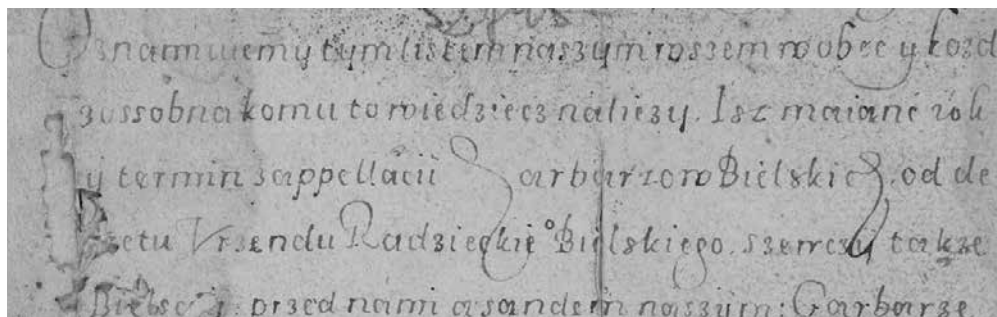 Oznaimuiemy tym listem naszym wszem w obec y kozd
zossobna komu to wiedziecz naliezy. Isz maiane rok
y termin z appellacii Garbarzow Bielskich od de
Vrzendu Radzieckie° Bielskiego. szewczy takze
przed nami a sandem naszym: Garbarze